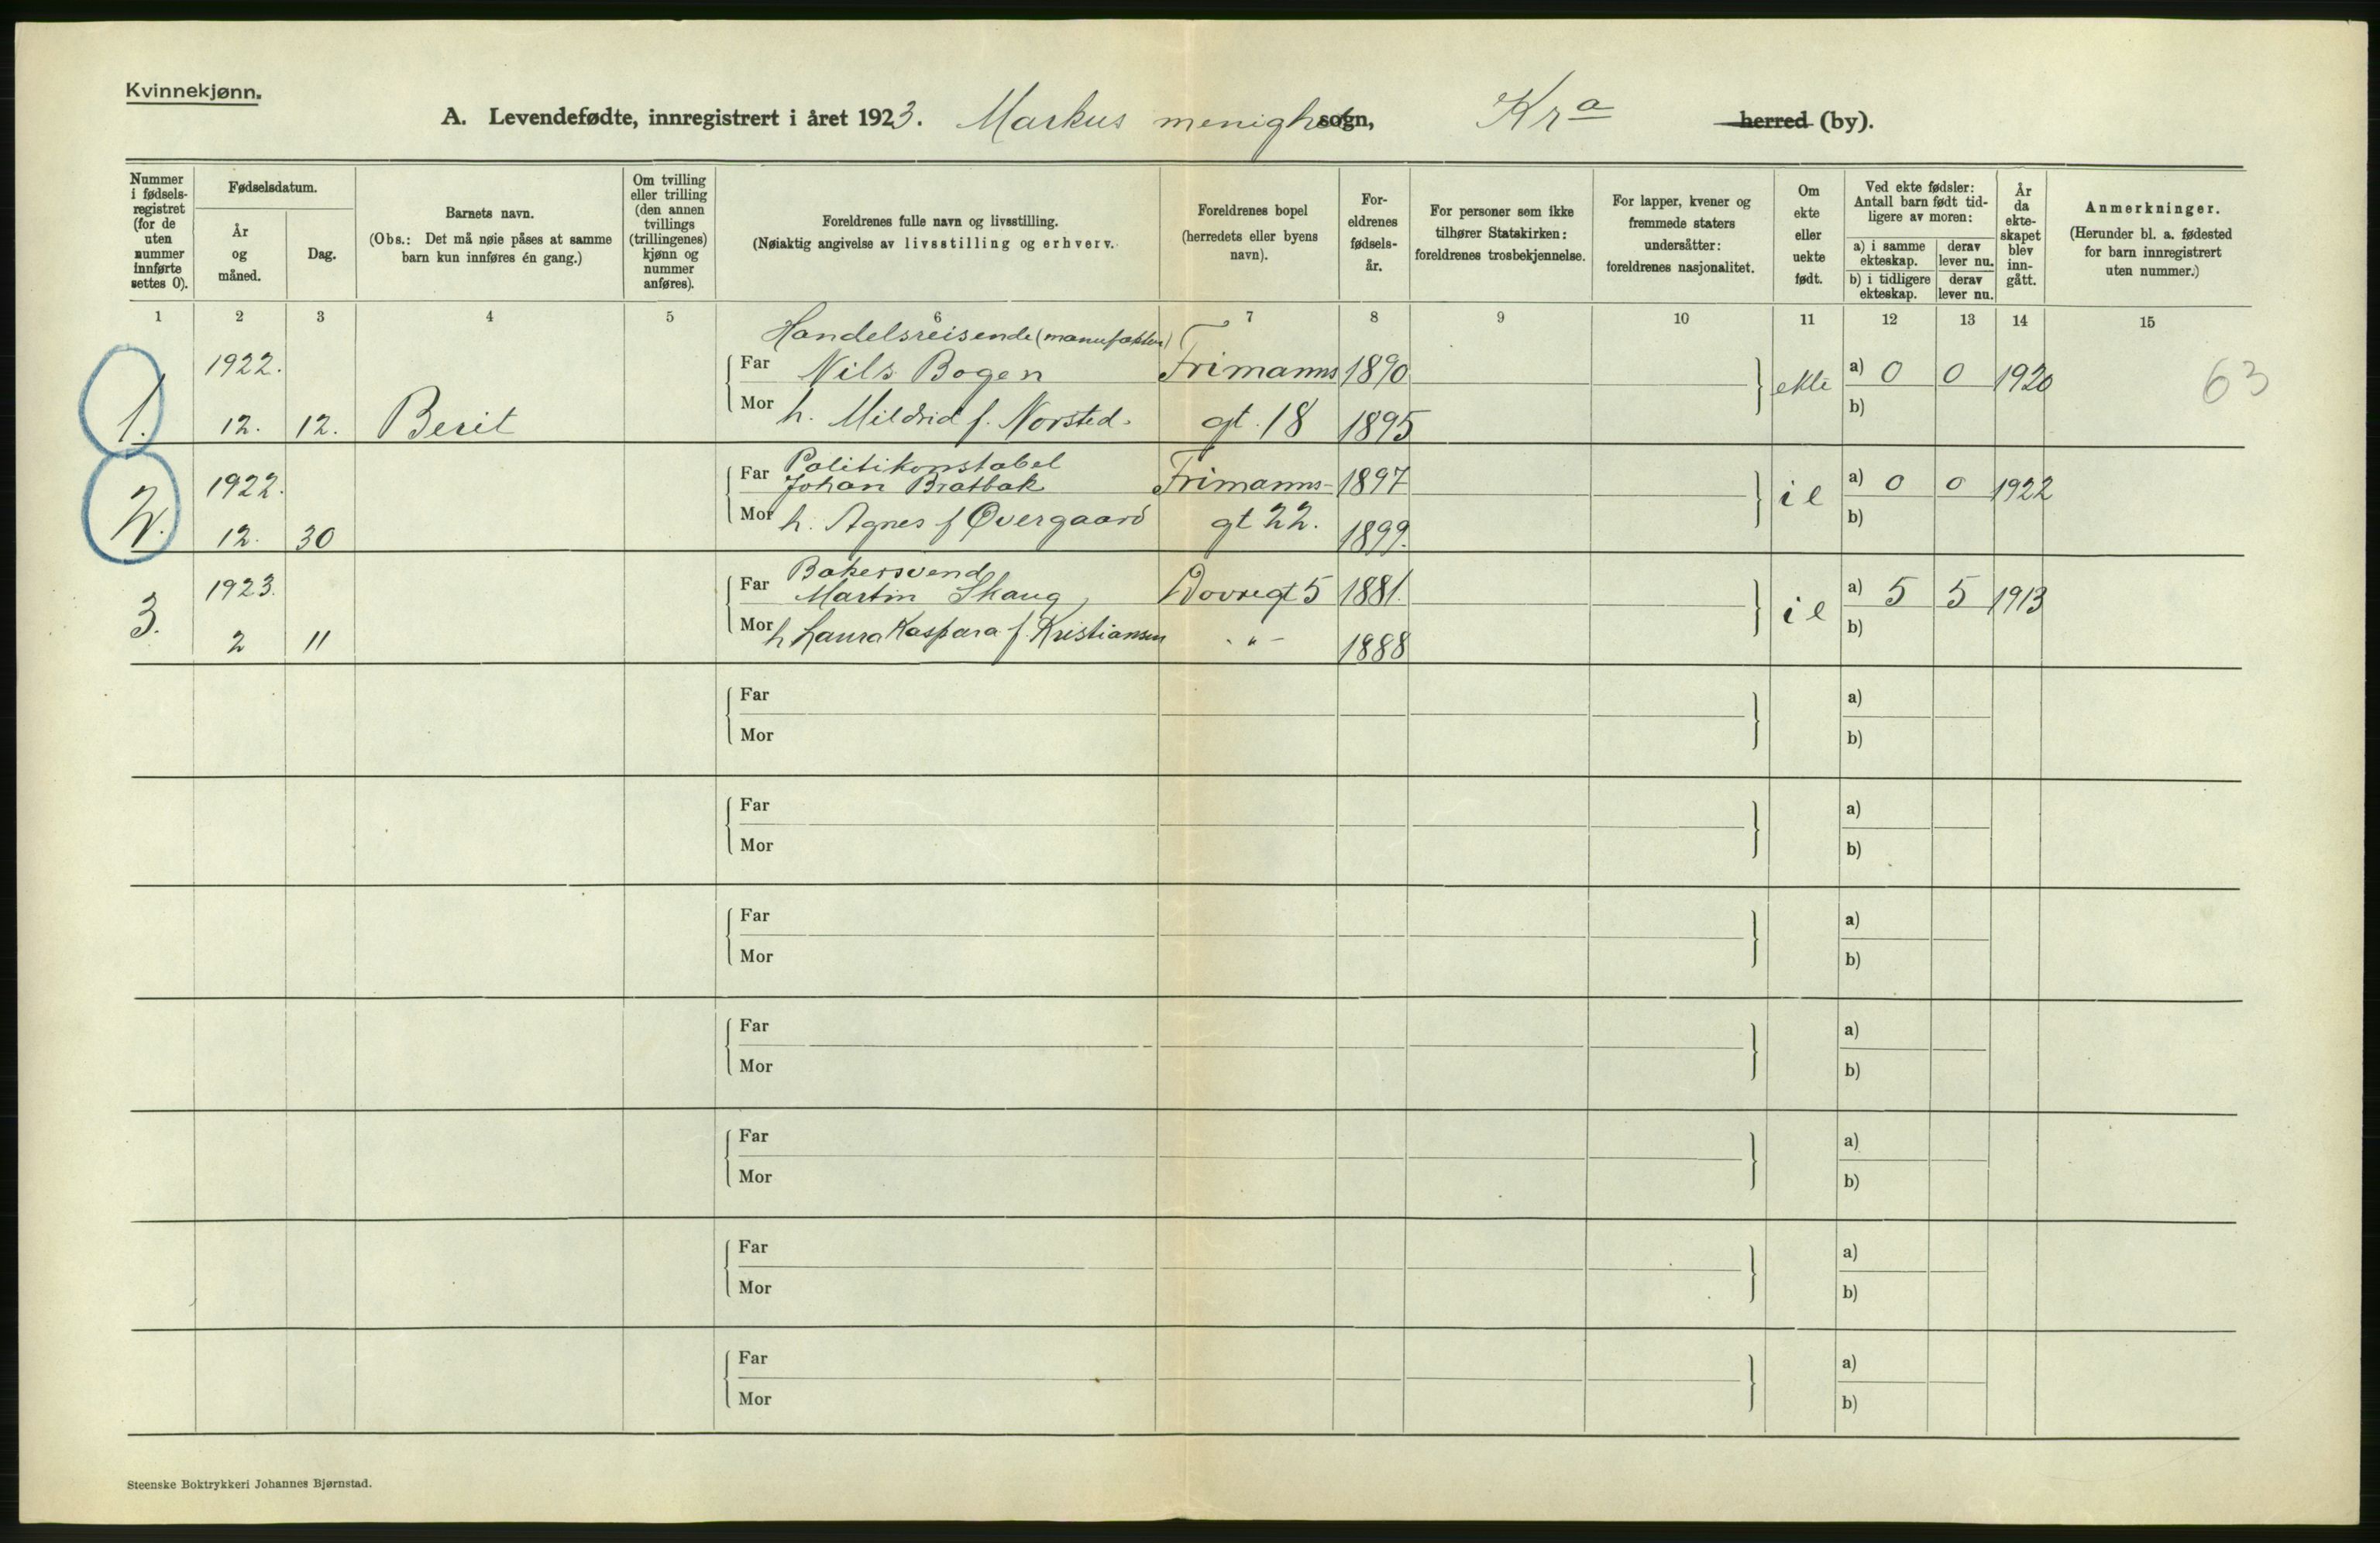 Kvinnekjønn.
A. Levendefødte, innregistrert i året 1923. Markus menighet sogn, Kra herred (by).
Nummer i fødsels-registret (for de uten nummer innførte settes 0).
Fødselsdatum.
År og måned.
Dag.
Barnets navn.
(Obs.: Det må nøie påses at samme barn kun innføres én gang.)
Om tvilling eller trilling (den annen tvillings (trillingenes) kjønn og nummer anføres).
Foreldrenes fulle navn og livsstilling.
(Nøiaktig angivelse av livsstilling og erhverv.)
Foreldrenes bopel (herredets eller byens navn).
For-eldrenes fødsels-år.
For personer som ikke tilhører Statskirken: foreldrenes trosbekjennelse.
For lapper, kvener og fremmede staters undersåtter: foreldrenes nasjonalitet.
Om ekte eller uekte født.
Ved ekte fødsler: Antall barn født tid-ligere av moren:
a) i samme ekteskap.
derav lever nu.
b) i tidligere ekteskap.
derav lever nu.
År da ekte-skapet blev inn-gått.
Anmerkninger.
(Herunder bl. a. fødested for barn innregistrert uten nummer.)
1 2 3 4 5 6 7 8 9 10 11 12 13 14 15
Handelsreisende (manufaktur)
1922. Far Nils Bogen Frimanns 1890 ekte a) 0 0 1920 63
1. 12. 12. Berit Mor h. Mildrid f. Norsted. gt. 18 1895 b)
Politikonstabel
1922. Far Johan Bratbak Frimanns- 1897 i e a) 0 0 1922
2. 12. 30 Mor h. Agnes f Øvergaard gt 22. 1899. b)
Bakersvend
1923. Far Martin Skaug, Dovregt 5 1881. i e a) 5 5 1913
3. 2 11 Mor h Laura Kaspara f. Kristiansen - " - 1888 b)
Far a)
Mor b)
Far a)
Mor b)
Far a)
Mor b)
Far a)
Mor b)
Far a)
Mor b)
Far a)
Mor b)
Far a)
Mor b)
Steenske Boktrykkeri Johannes Bjørnstad.